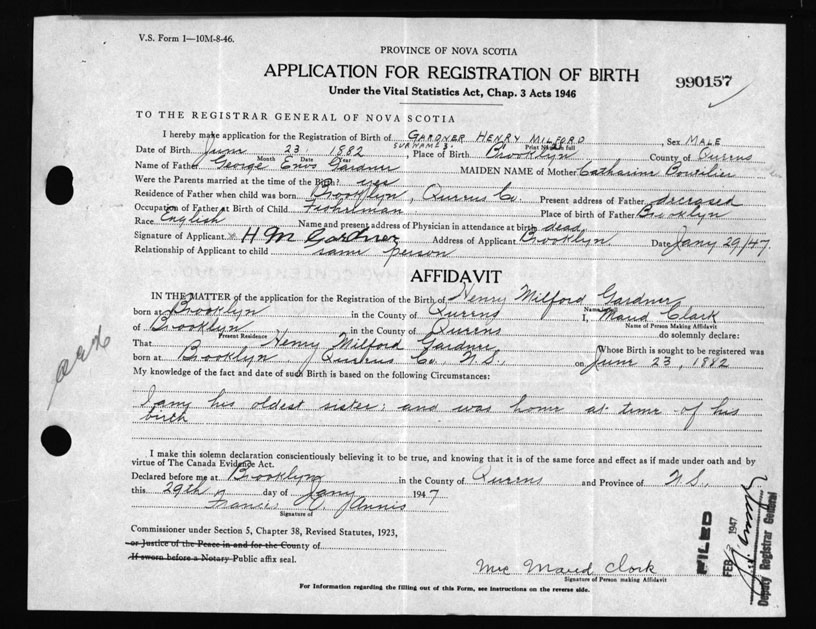 V.S. Form 1—10M-8-46.
PROVINCE OF NOVA SCOTIA
APPLICATION FOR REGISTRATION OF BIRTH
990157
Under the Vital Statistics Act, Chap. 3 Acts 1946
TO THE REGISTRAR GENERAL OF NOVA SCOTIA
I hereby make application for the Registration of Birth of GARDNER HENRY MILFORD, Sex MALE
SURNAME Print Name in full
Date of Birth June 23. 1882, Place of Birth Brooklyn County of Queens
Month Date Year
Name of Father George Enos Gardner MAIDEN NAME of Mother Catharine Boutilier
Were the Parents married at the time of the Birth? yes
Residence of Father when child was born Brooklyn, Queens Co. Present address of Father deceased
Occupation of Father at Birth of Child Fisherman Place of birth of Father Brooklyn
Race English Name and present address of Physician in attendance at birth dead
Signature of Applicant H M Gardner Address of Applicant Brooklyn Date Jany 29/47.
Relationship of Applicant to child same person
AFFIDAVIT
IN THE MATTER of the application for the Registration of the Birth of Henry Milford Gardner
born at Brooklyn in the County of Queens I, Maud Clark
of Brooklyn in the County of Queens Name of Person Making Affidavit
Present Residence do solemnly declare:
That Henry Milford Gardner Whose Birth is sought to be registered was
born at Brooklyn Queens Co., N.S., on June 23, 1882
My knowledge of the fact and date of such Birth is based on the following Circumstances:
I am his oldest sister; and was home at time of his
birth
I make this solemn declaration conscientiously believing it to be true, and knowing that it is of the same force and effect as if made under oath and by
virtue of The Canada Evidence Act.
Declared before me at Brooklyn in the County of Queens and Province of N.S.
this 29th day of Jany 1947
Francis C. Annis
Signature of
Commissioner under Section 5, Chapter 38, Revised Statutes, 1923,
or Justice of the Peace in and for the County of
If sworn before a Notary Public affix seal.
Mrs Maud Clark
Signature of Person making Affidavit
For Information regarding the filling out of this Form, see instructions on the reverse side.
FILED
FEB 1947
Deputy Registrar General